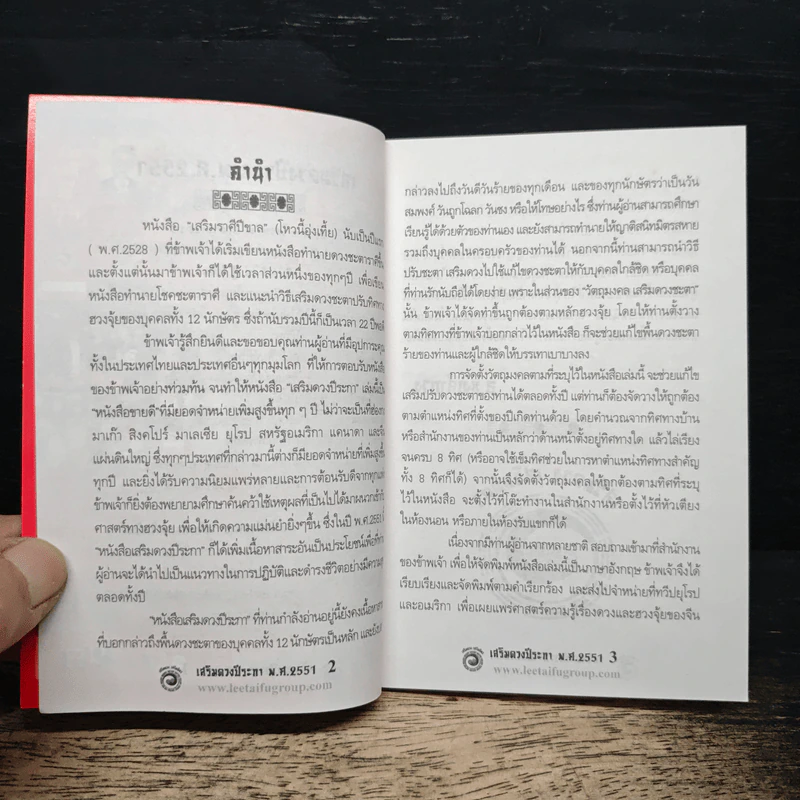 คำนำ
หนังสือ "เสริมราศีปีขาล" (โหวนี้อุ่งเที้ย) นับเป็นปีแรก
( พ.ศ.2528 ) ที่ข้าพเจ้าได้เริ่มเขียนหนังสือทำนายดวงชะตาราศีขึ้น
และตั้งแต่นั้นมาข้าพเจ้าก็ได้ใช้เวลาส่วนหนึ่งของทุกๆปี เพื่อเขียน
หนังสือทำนายโชคชะตาราศี และแนะนำวิธีเสริมดวงชะตาปรับทิศทาง
ฮวงจุ้ยของบุคคลทั้ง 12 นักษัตร ซึ่งถ้านับรวมปีนี้ก็เป็นเวลา 22 ปีพอดี
ข้าพเจ้ารู้สึกยินดีและขอขอบคุณท่านผู้อ่านที่มีอุปการะคุณ
ทั้งในประเทศไทยและประเทศอื่นๆทุกมุมโลก ที่ให้การตอบรับหนังสือ
ของข้าพเจ้าอย่างท่วมท้น จนทำให้หนังสือ "เสริมดวงปีระกา" เล่มนี้เป็น
"หนังสือขายดี"ที่มียอดจำหน่ายเพิ่มสูงขึ้นทุก ๆ ปี ไม่ว่าจะเป็นที่ฮ่องกง
มาเก๊า สิงคโปร์ มาเลเซีย ยุโรป สหรัฐอเมริกา แคนาดา และจีน
แผ่นดินใหญ่ ซึ่งทุกๆประเทศที่กล่าวมานี้ต่างก็มียอดจำหน่ายที่เพิ่มสูงขึ้น
ทุกปี และยิ่งได้รับความนิยมแพร่หลายและการต้อนรับดีจากทุกแห่ง
ข้าพเจ้าก็ยิ่งต้องพยายามศึกษาค้นคว้าใช้เหตุผลที่เป็นไปได้มาผนวกเข้ากับ
ศาสตร์ทางฮวงจุ้ย เพื่อให้เกิดความแม่นยำยิ่งๆขึ้น ซึ่งในปี พ.ศ.2551 นี้
"หนังสือเสริมดวงปีระกา" ก็ได้เพิ่มเนื้อหาสาระอันเป็นประโยชน์เพื่อที่ท่าน
ผู้อ่านจะได้นำไปเป็นแนวทางในการปฏิบัติและดำรงชีวิตอย่างมีความสุข
ตลอดทั้งปี
"หนังสือเสริมดวงปีระกา" ที่ท่านกำลังอ่านอยู่นี้ยังคงเนื้อหาสาระ
ที่บอกกล่าวถึงพื้นดวงชะตาของบุคคลทั้ง 12 นักษัตรเป็นหลัก และยังบอก
เสริมดวงปีระกา พ.ศ.2551 2
www.leetaifugroup.com
กล่าวลงไปถึงวันดีวันร้ายของทุกเดือน และของทุกนักษัตรว่าเป็นวัน
สมพงศ์ วันถูกโฉลก วันชง หรือให้โทษอย่างไร ซึ่งท่านผู้อ่านสามารถศึกษา
เรียนรู้ได้ด้วยตัวของท่านเอง และยังสามารถทำนายให้ญาติสนิทมิตรสหาย
รวมถึงบุคคลในครอบครัวของท่านได้ นอกจากนี้ท่านสามารถนำวิธี
ปรับชะตา เสริมดวงไปใช้แก้ไขดวงชะตาให้กับบุคคลใกล้ชิด หรือบุคคล
ที่ท่านรักนับถือได้โดยง่าย เพราะในส่วนของ "วัตถุมงคล เสริมดวงชะตา"
นั้น ข้าพเจ้าได้จัดทำขึ้นถูกต้องตามหลักฮวงจุ้ย โดยให้ท่านตั้งวาง
ตามทิศทางที่ข้าพเจ้าบอกกล่าวไว้ในหนังสือ ก็จะช่วยแก้ไขพื้นดวงชะตา
ร้ายของท่านและผู้ใกล้ชิดให้บรรเทาเบาบางลง
การจัดตั้งวัตถุมงคลตามที่ระบุไว้ในหนังสือเล่มนี้ จะช่วยแก้ไข
เสริมปรับดวงชะตาของท่านได้ตลอดทั้งปี แต่ท่านก็ต้องจัดวางให้ถูกต้อง
ตามตำแหน่งทิศที่ตั้งของปีเกิดท่านด้วย โดยคำนวณจากทิศทางบ้าน
หรือสำนักงานของท่านเป็นหลักว่าด้านหน้าตั้งอยู่ทิศทางใด แล้วไล่เรียง
จนครบ 8 ทิศ (หรืออาจใช้เข็มทิศช่วยในการหาตำแหน่งทิศทางสำคัญ
ทั้ง 8 ทิศก็ได้ ) จากนั้นจึงจัดตั้งวัตถุมงคลให้ถูกต้องตามทิศที่ระบุ
ไว้ในหนังสือ จะตั้งไว้ที่โต๊ะทำงานในสำนักงานหรือตั้งไว้ที่หัวเตียง
ในห้องนอน หรือภายในห้องรับแขกก็ได้
เนื่องจากมีท่านผู้อ่านจากหลายชาติ สอบถามเข้ามาที่สำนักงาน
ของข้าพเจ้า เพื่อให้จัดพิมพ์หนังสือเล่มนี้เป็นภาษาอังกฤษ ข้าพเจ้าจึงได้
เรียบเรียงและจัดพิมพ์ตามคำเรียกร้อง และส่งไปจำหน่ายที่ทวีปยุโรป
และอเมริกา เพื่อเผยแพร่ศาสตร์ความรู้เรื่องดวงและฮวงจุ้ยของจีน
เสริมดวงปีระกา พ.ศ.2551 3
www.leetaifugroup.com